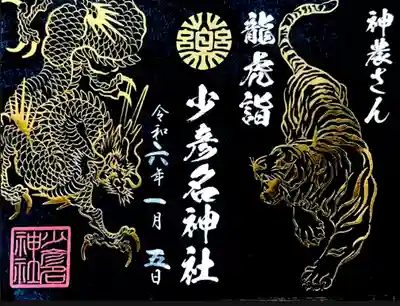 神農さん
龍虎詣
少彦名神社
令和六年一月五日
少彦名
神社